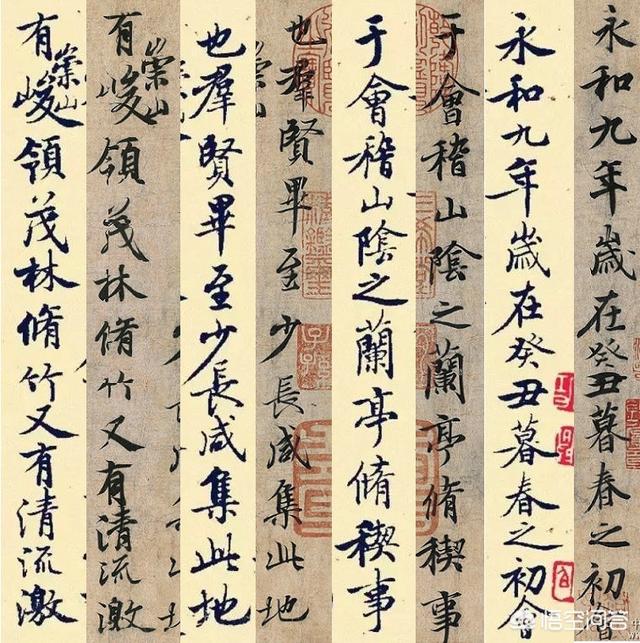 永和九年歲在癸丑暮春之初會
永和九年歲在癸丑暮春之初會
于會稽山陰之蘭亭脩稧事
于會稽山陰之蘭亭脩稧事
也羣賢畢至少長咸集此地
也羣賢畢至少長咸集此地
有崇山峻領茂林脩竹又有清流激
有崇山峻領茂林脩竹又有清流激
悟空问答